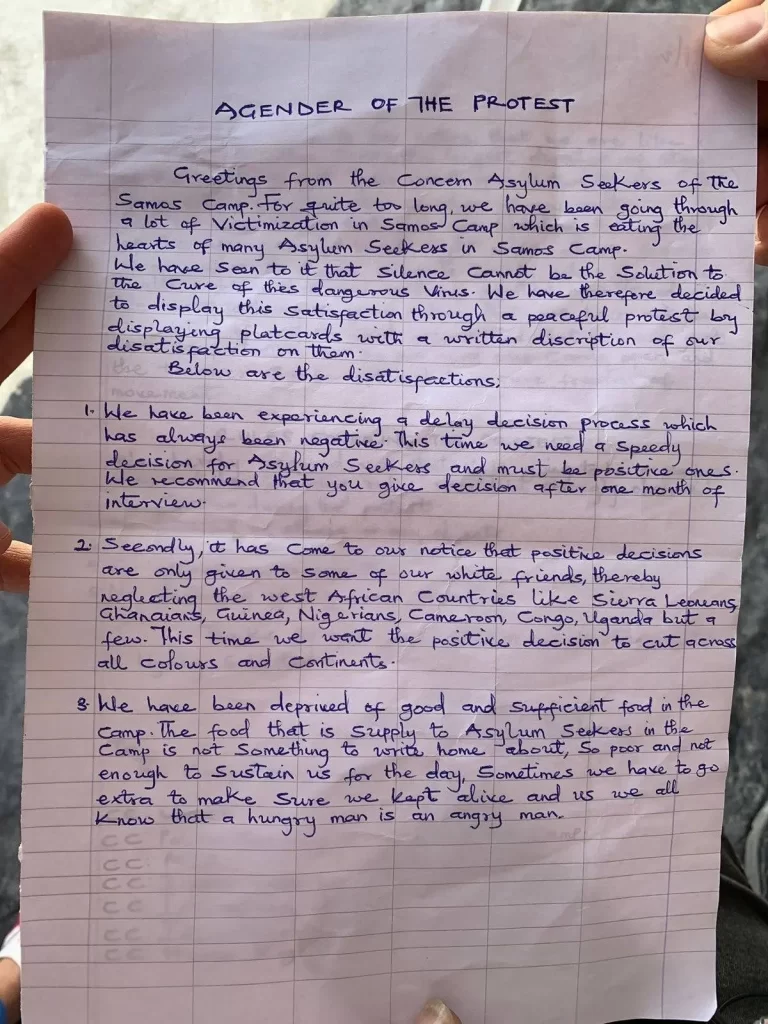 AGENDER OF THE PROTEST
Greetings from the Concern Asylum Seekers of the
Samos Camp. For quite too long, we have been going through
a lot of Victimization in Samos Camp which is eating the
hearts of many Asylum Seekers in Samos Camp.
We have seen to it that silence cannot be the solution to
the cure of this dangerous virus. We have therefore decided
to display this satisfaction through a peaceful protest by
displaying platcards with a written discription of our
disatisfaction on them.
Below are the disatisfactions;
1. We have been experiencing a delay decision process which
has always been negative. This time we need a speedy
decision for Asylum Seekers and must be positive ones.
We recommend that you give decision after one month of
interview.
2. Secondly, it has come to our notice that positive decisions
are only given to some of our white friends, thereby
neglecting the west African Countries like Sierra Leoneans,
Ghanaians, Guinea, Nigerians, Cameroon, Congo, Uganda but a
few. This time we want the positive decision to cut across
all colours and continents.
3. We have been deprived of good and sufficient food in the
camp. The food that is supply to Asylum Seekers in the
Camp is not something to write home about, so poor and not
enough to sustain us for the day, sometimes we have to go
extra to make sure we kept alive and us we all
know that a hungry man is an angry man.
CC
CC
CC
CC
CC
CC